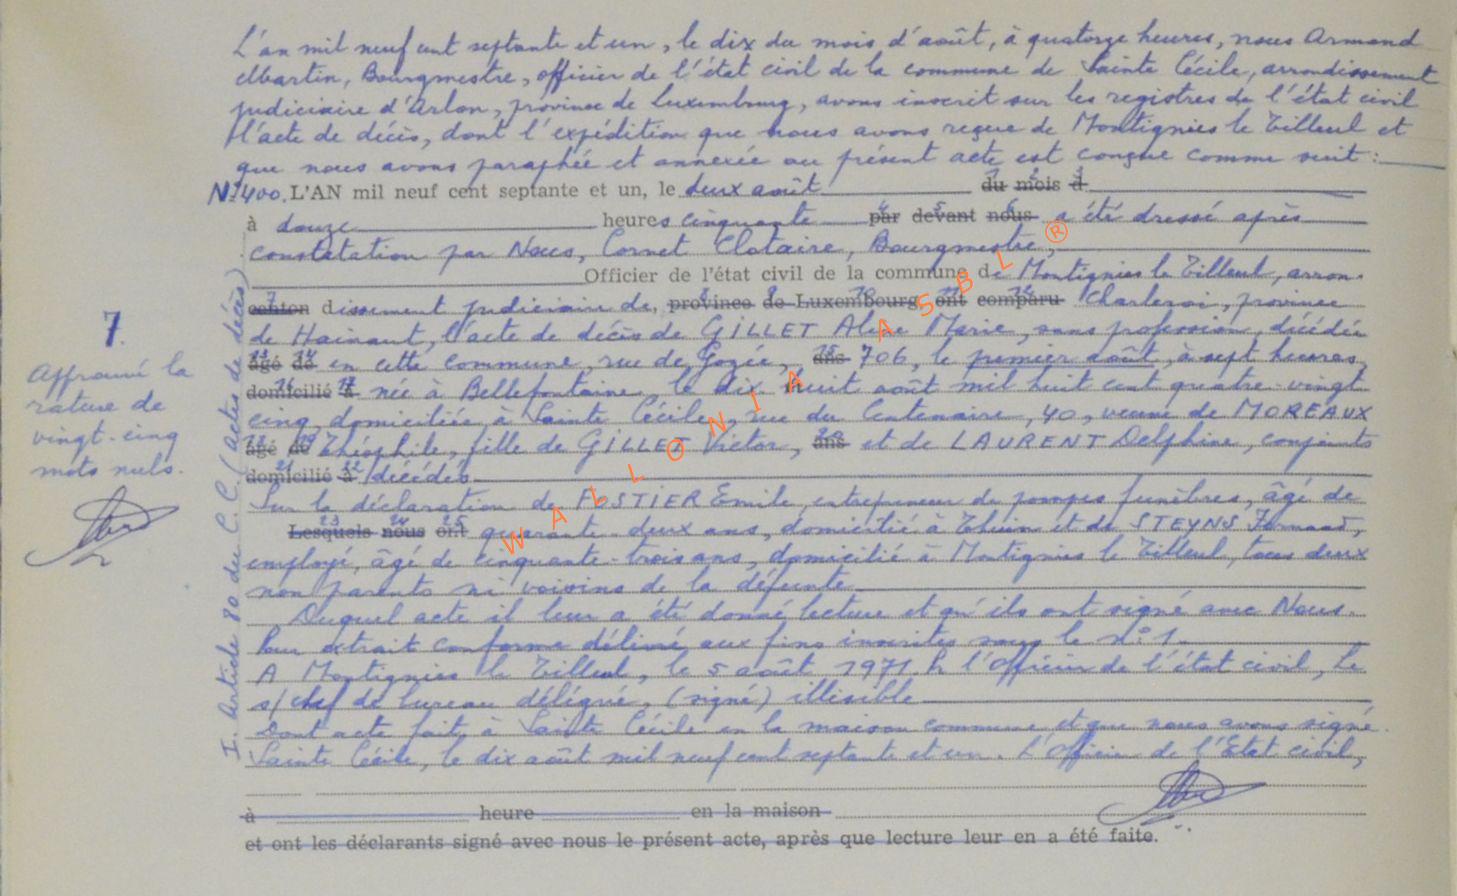 L'an mil neuf cent septante et un, le dix du mois d'août, à quatorze heures, nous Armand
Martin, Bourgmestre, officier de l'état civil de la commune de Sainte Cécile, arrondissement
judiciaire d'Arlon, province de Luxembourg, avons inscrit sur les registres de l'état civil
l'acte de décès, dont l'expédition que nous avons reçue de Montignies le Tilleul et
que nous avons paraphée et annexée au présent acte est conçue comme suit :
N° 400. L'AN mil neuf cent septante et un, le deux août du mois d
à douze heures cinquante par devant nous a été dressé après
constatation par Nous, Cornet Clotaire, Bourgmestre,
Officier de l'état civil de la commune de Montignies le Tilleul, arron-
echton dissement judiciaire de, province de Luxembourg ont comparu Charleroi, province
de Hainaut, l'acte de décès de GILLET Aline Marie, sans profession, décédée
âgé de en cette commune, rue de Gozée, ans 706, le premier août, à sept heures,
domicilié à née à Bellefontaine le dix huit août mil huit cent quatre-vingt
cinq, domiciliée à Sainte Cécile, rue du Centenaire, 40, veuve de MOREAUX
âgé de Théophile, fille de GILLET Victor, ans et de LAURENT Delphine, conjoints
domicilié à décédés
Sur la déclaration de FOSTIER Emile, entrepreneur de pompes funèbres, âgé de
Lesquels nous ont quarante-deux ans, domicilié à Thuin et de STEYNS Fernand,
employé, âgé de cinquante-trois ans, domicilié à Montignies le Tilleul, tous deux
non parents ni voisins de la défunte
Duquel acte il leur a été donné lecture et qu'ils ont signé avec Nous.
Pour extrait conforme délivré aux fins inscrites sous le n° 1.
A Montignies le Tilleul, le 5 août 1971. P. l'Officier de l'état civil, Le
s/chef de bureau délégué, (signé) illisible
Dont acte fait, à Sainte Cécile en la maison commune et que nous avons signé.
Sainte Cécile, le dix août mil neuf cent septante et un. L'Officier de l'Etat civil,
à heure en la maison
et ont les déclarants signé avec nous le présent acte, après que lecture leur en a été faite.
7.
Approuvé la
rature de
vingt-cinq
mots nuls.
I. Article 80 du C.C. (actes de décès)
WALLONIA ASBL ®